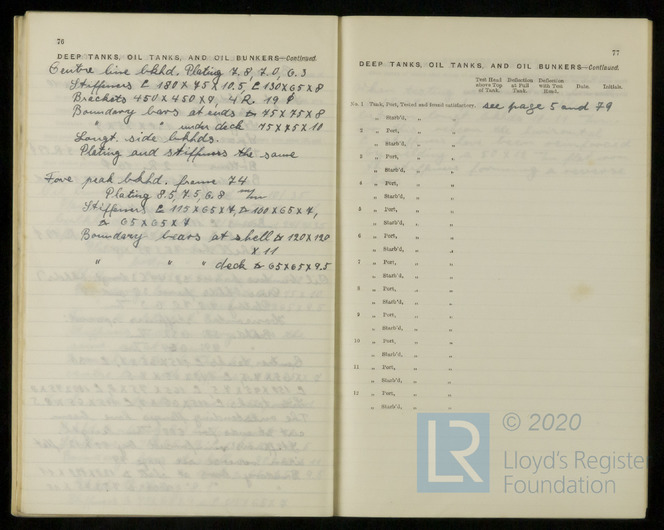 76
DEEP TANKS, OIL TANKS, AND OIL BUNKERS—Continued.
Centre line bkhd. Plating 7.8, 7.0, 6.3
Stiffeners [ 180 x 75 x 10.5, [ 130 x 65 x 8
Brackets 450 x 450 x 9, 4 R. 19
Boundary bars at ends 75 x 75 x 8
" " under deck 75 x 75 x 10
Longt. side bkhds.
Plating and stiffeners the same
Fore peak bkhd. frame 74
Plating 8.5, 7.5, 6.8 m/m
Stiffeners [ 115 x 65 x 7, 100 x 65 x 7,
65 x 65 x 7
Boundary bars at shell 120 x 120
x 11
" " " deck 65 x 65 x 9.5
77
DEEP TANKS, OIL TANKS, AND OIL BUNKERS—Continued.
Test Head above Top of Tank. Deflection at Full Tank. Deflection with Test Head. Date. Initials.
No. 1 Tank, Port, Tested and found satisfactory. see page 5 and 79
" Starb'd, "
2 " Port, " "
" Starb'd, " "
3 " Port, " "
" Starb'd, " "
4 " Port, " "
" Starb'd, " "
5 " Port, " "
" Starb'd, " "
6 " Port, " "
" Starb'd, " "
7 " Port, " "
" Starb'd, " "
8 " Port, " "
" Starb'd, " "
9 " Port, " "
" Starb'd, " "
10 " Port, " "
" Starb'd, " "
11 " Port, " "
" Starb'd, " "
12 " Port, " "
" Starb'd, " "
© 2020
LR
Lloyd's Register
Foundation